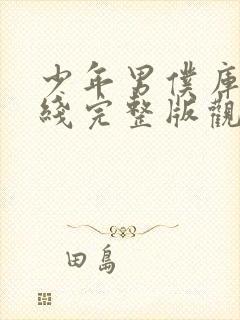 少年男僕庫
綫完整版觀
田島